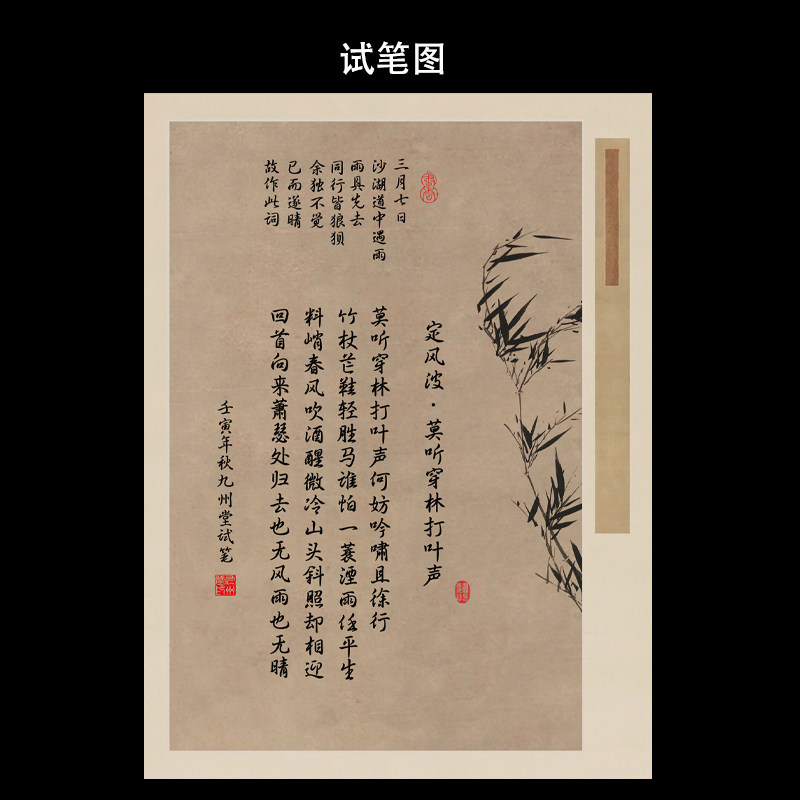 试笔图
三月七日
沙湖道中遇雨
雨具先去
同行皆狼狈
余独不觉
已而遂晴
故作此词
定风波·莫听穿林打叶声
莫听穿林打叶声何妨吟啸且徐行
竹杖芒鞋轻胜马谁怕一蓑湮雨任平生
料峭春风吹酒醒微冷山头斜照却相迎
回首向来萧瑟处归去也无风雨也无晴
壬寅年秋九州堂试笔